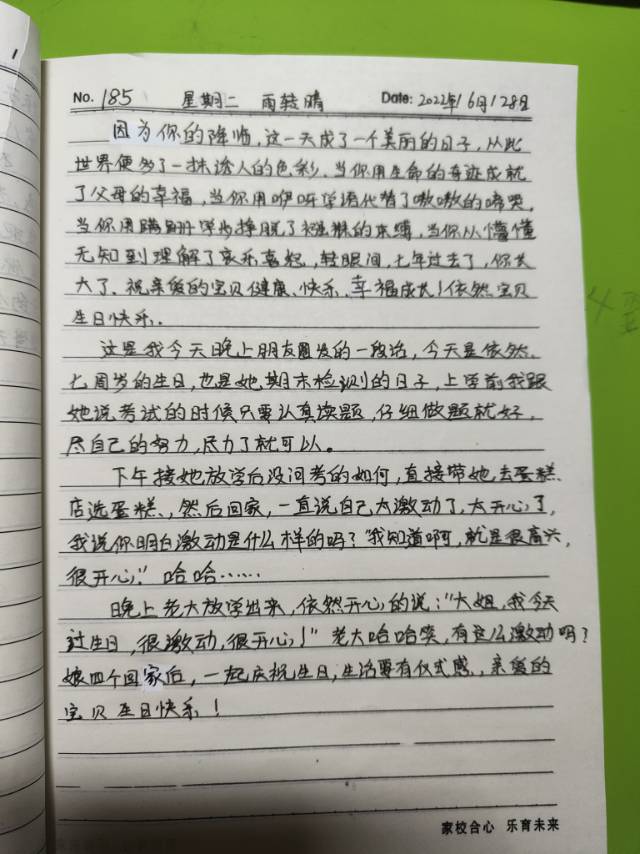 No. 185 星期二 雨转晴 Date: 2022年16月128日
因为你的降临,这一天成了一个美丽的日子,从此
世界便多了一抹诱人的色彩,当你用生命的奇迹成就
了父母的幸福,当你用咿呀学语代替了嗷嗷的啼哭,
当你用蹒跚学步挣脱了襁褓的束缚,当你从懵懂
无知到理解了哀乐喜怒,转眼间,七年过去了,你长
大了、祝亲爱的宝贝健康、快乐、幸福成长!依然宝贝
生日快乐.
这是我今天晚上朋友圈发的一段话,今天是依然、
七周岁的生日,也是她期末检测的日子,上学前我跟
她说考试的时候只要认真读题,仔细做题就好,
尽自己的努力,尽力了就可以。
下午接她放学后没问考的如何,直接带她去蛋糕
店选蛋糕、,然后回家,一直说自己太激动了,太开心了,
我说你明白激动是什么样的吗?"我知道啊,就是很高兴,
很开心!"哈哈……
晚上老大放学出来,依然开心的说:"大姐,我今天
过生日,很激动,很开心!"老大哈哈笑,有这么激动吗?
娘四个回家后,一起庆祝生日,生活要有仪式感,亲爱的
宝贝生日快乐!
家校合心 乐育未来